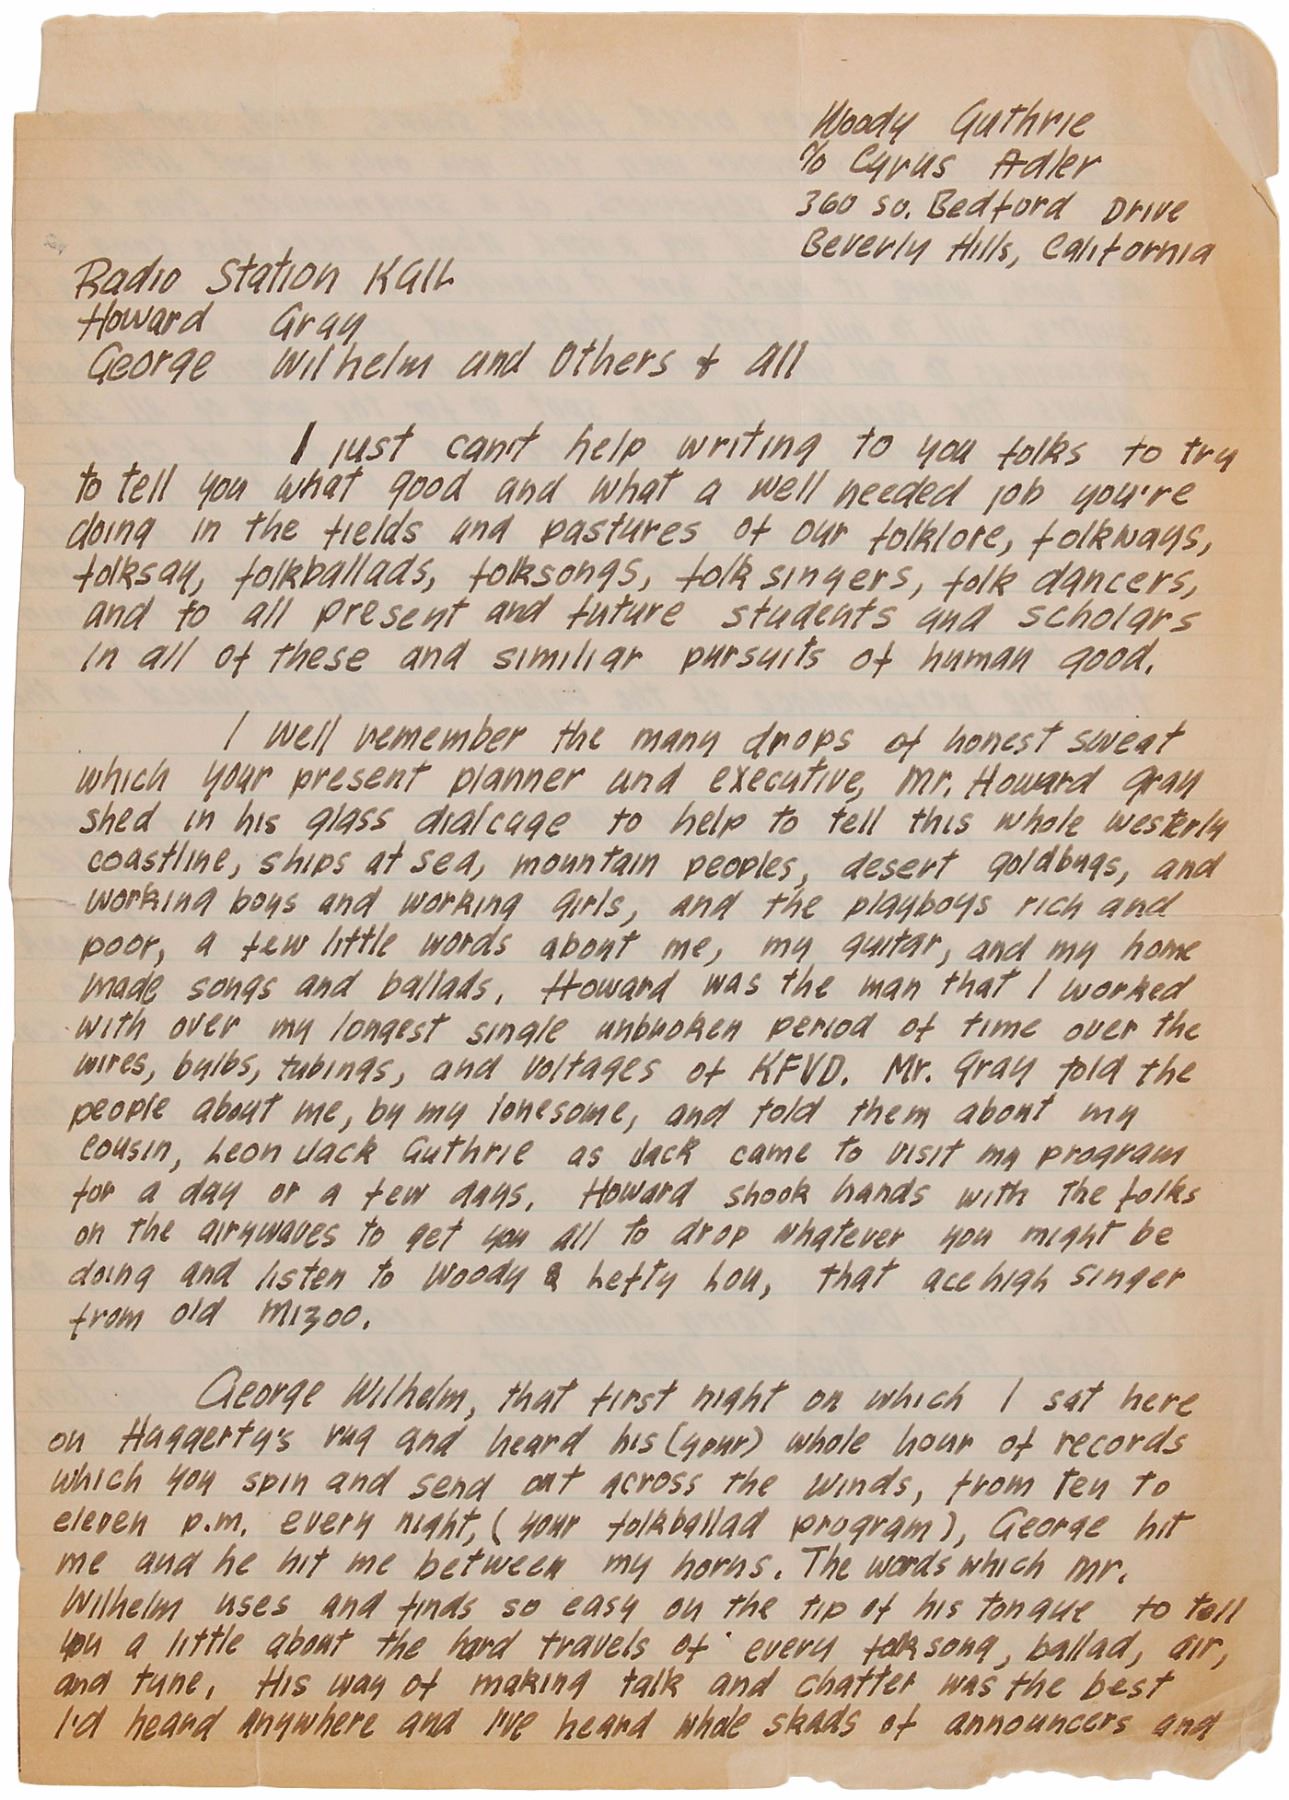 Woody Guthrie
c/o Cyrus Adler
360 so. Bedford Drive
Beverly Hills, California
Radio Station KGIL
Howard Gray
George Wilhelm and Others & all
I just can't help writing to you folks to try
to tell you what good and what a well needed job you're
doing in the fields and pastures of our folklore, folkways,
folksay, folkballads, folksongs, folk singers, folk dancers,
and to all present and future students and scholars
in all of these and similiar pursuits of human good.
I well remember the many drops of honest sweat
which your present planner and executive, Mr. Howard Gray
shed in his glass dialcage to help to tell this whole westerly
coastline, ships at sea, mountain peoples, desert goldbugs, and
working boys and working girls, and the playboys rich and
poor, a few little words about me, my guitar, and my home
made songs and ballads. Howard was the man that I worked
with over my longest single unbroken period of time over the
wires, bulbs, tubings, and voltages of KFVD. Mr. Gray told the
people about me, by my lonesome, and told them about my
cousin, Leon Jack Guthrie as Jack came to visit my program
for a day or a few days. Howard shook hands with the folks
on the airywaves to get you all to drop whatever you might be
doing and listen to Woody & Lefty Lou, that ace high singer
from old Mizoo.
George Wilhelm, that first night on which I sat here
on Haggerty's rug and heard his (your) whole hour of records
which you spin and send out across the winds, from ten to
eleven p.m. every night, (your folkballad program), George hit
me and he hit me between my horns. The words which Mr.
Wilhelm uses and finds so easy on the tip of his tongue to tell
you a little about the hard travels of every folksong, ballad, air,
and tune. His way of making talk and chatter was the best
I'd heard anywhere and I've heard whole skads of announcers and